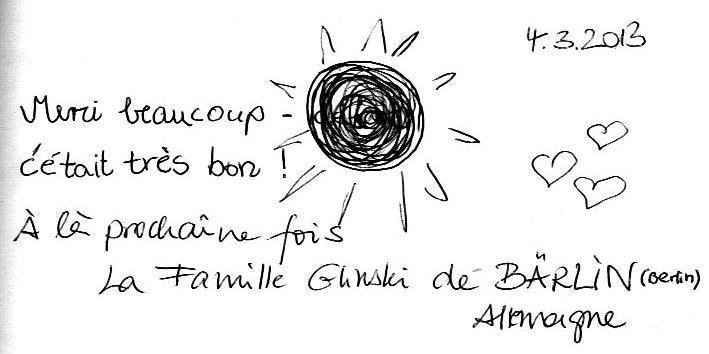 4.3.2013
Merci beaucoup -
c'était très bon !
À là prochaîne fois
La Famille Glinski de BÄRLÌN (Berlin)
Allemagne